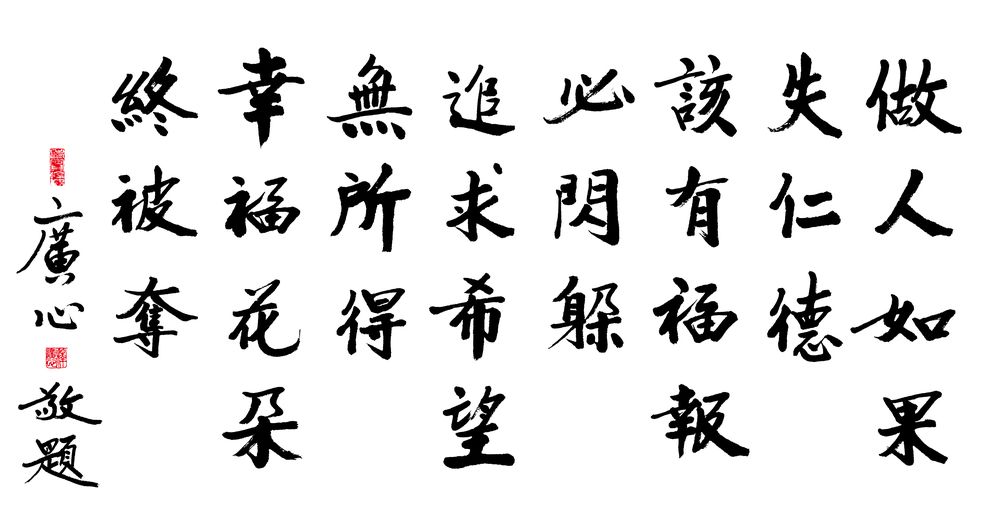 做人如果
失仁德
該有福報
必閃躲
追求希望
無所得
幸福花朵
終被奪
廣心敬題